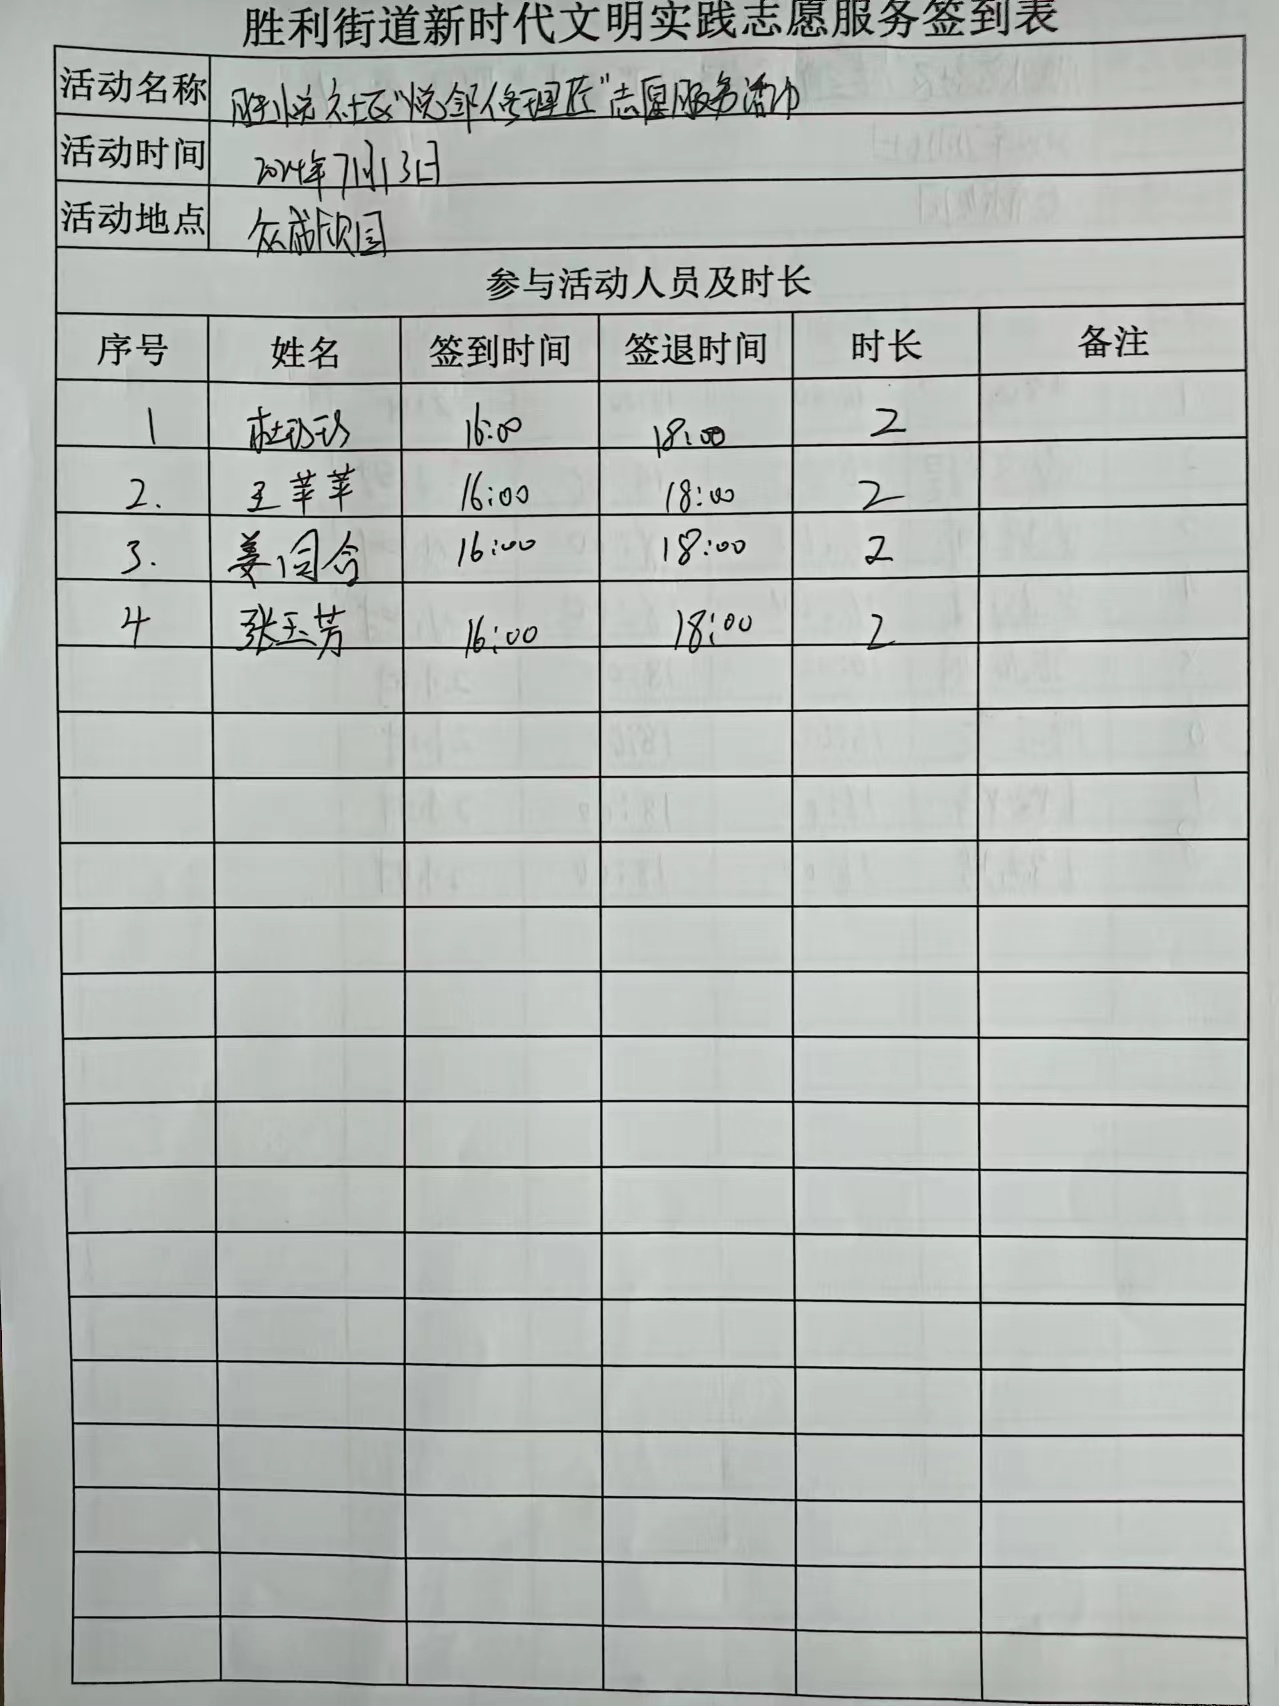 胜利街道新时代文明实践志愿服务签到表
活动名称 胜悦社区“悦邻修理匠”志愿服务活动
活动时间 2024年7月13日
活动地点 众成欣园
参与活动人员及时长
序号 姓名 签到时间 签退时间 时长 备注
1 杜珍珍 16:00 18:00 2
2. 王苹苹 16:00 18:00 2
3. 姜闫合 16:00 18:00 2
4 张玉芳 16:00 18:00 2